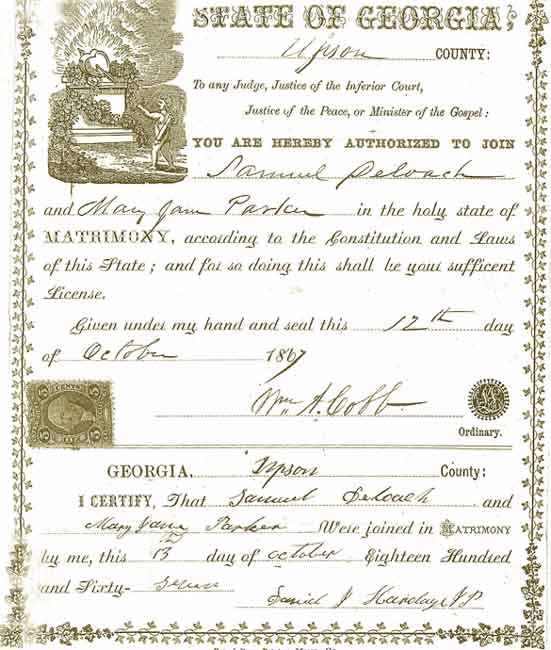 STATE OF GEORGIA,
Upson COUNTY:
To any Judge, Justice of the Inferior Court,
Justice of the Peace, or Minister of the Gospel:
YOU ARE HEREBY AUTHORIZED TO JOIN
Samuel Deloach
and Mary Jane Parker in the holy state of
MATRIMONY, according to the Constitution and Laws
of this State; and for so doing this shall be your sufficent
License.
Given under my hand and seal this 12th day
of October 1867
Wm A. Cobb
Ordinary.
GEORGIA, Upson County:
I CERTIFY, That Samuel Deloach and
Mary Jane Parker Were joined in MATRIMONY
by me, this 13 day of October Eighteen Hundred
and Sixty-seven
J Hardage JP